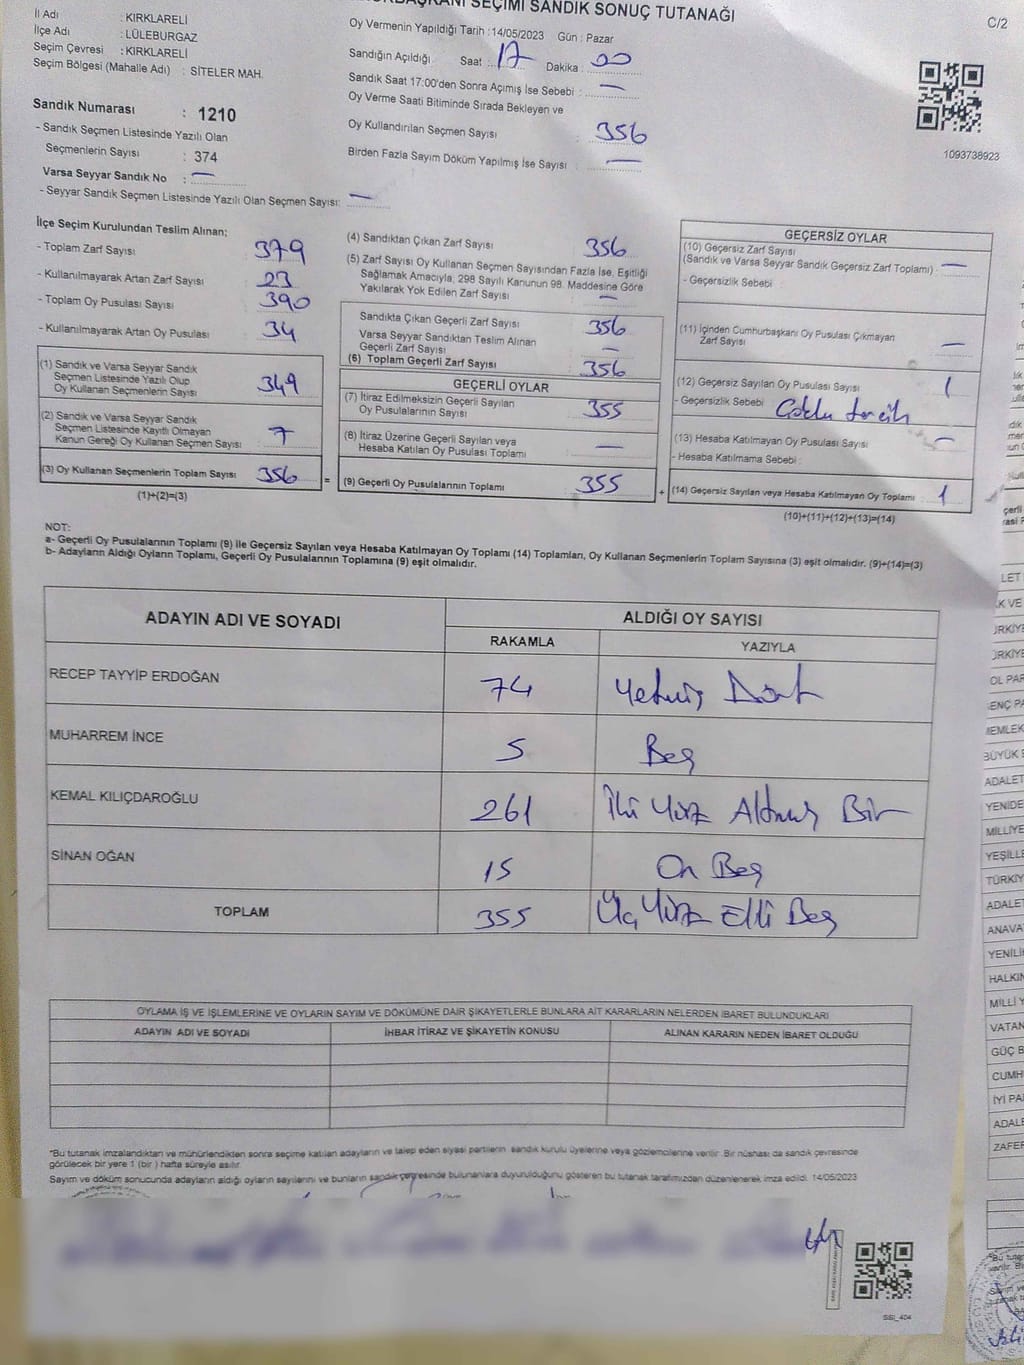 SEÇİMİ SANDIK SONUÇ TUTANAĞI
C/2
İl Adı : KIRKLARELİ
İlçe Adı : LÜLEBURGAZ
Seçim Çevresi : KIRKLARELİ
Seçim Bölgesi (Mahalle Adı) : SİTELER MAH.
Sandık Numarası : 1210
- Sandık Seçmen Listesinde Yazılı Olan
Seçmenlerin Sayısı : 374
Varsa Seyyar Sandık No : —
- Seyyar Sandık Seçmen Listesinde Yazılı Olan Seçmen Sayısı: —
Oy Vermenin Yapıldığı Tarih :14/05/2023 Gün : Pazar
Sandığın Açıldığı Saat : 17 Dakika : 00
Sandık Saat 17:00'den Sonra Açımış İse Sebebi : —
Oy Verme Saati Bitiminde Sırada Bekleyen ve
Oy Kullandırılan Seçmen Sayısı : 356
Birden Fazla Sayım Döküm Yapılmış İse Sayısı : —
1093738923
İlçe Seçim Kurulundan Teslim Alınan;
- Toplam Zarf Sayısı : 379
- Kullanılmayarak Artan Zarf Sayısı : 23
- Toplam Oy Pusulası Sayısı : 390
- Kullanılmayarak Artan Oy Pusulası : 34
(1) Sandık ve Varsa Seyyar Sandık
Seçmen Listesinde Yazılı Olup
Oy Kullanan Seçmenlerin Sayısı : 349
(2) Sandık ve Varsa Seyyar Sandık
Seçmen Listesinde Kayıtlı Olmayan
Kanun Gereği Oy Kullanan Seçmen Sayısı : 7
(3) Oy Kullanan Seçmenlerin Toplam Sayısı : 356 =
(1)+(2)=(3)
(4) Sandıktan Çıkan Zarf Sayısı : 356
(5) Zarf Sayısı Oy Kullanan Seçmen Sayısından Fazla İse, Eşitliği
Sağlamak Amacıyla, 298 Sayılı Kanunun 98. Maddesine Göre
Yakılarak Yok Edilen Zarf Sayısı : —
Sandıkta Çıkan Geçerli Zarf Sayısı : 356
Varsa Seyyar Sandıktan Teslim Alınan
Geçerli Zarf Sayısı : —
(6) Toplam Geçerli Zarf Sayısı : 356
GEÇERLİ OYLAR
(7) İtiraz Edilmeksizin Geçerli Sayılan
Oy Pusulalarının Sayısı : 355
(8) İtiraz Üzerine Geçerli Sayılan veya
Hesaba Katılan Oy Pusulası Toplamı : —
(9) Geçerli Oy Pusulalarının Toplamı : 355 +
GEÇERSİZ OYLAR
(10) Geçersiz Zarf Sayısı
(Sandık ve Varsa Seyyar Sandık Geçersiz Zarf Toplamı) : —
- Geçersizlik Sebebi :
(11) İçinden Cumhurbaşkanı Oy Pusulası Çıkmayan
Zarf Sayısı : —
(12) Geçersiz Sayılan Oy Pusulası Sayısı : 1
- Geçersizlik Sebebi : Çoklu tercih
(13) Hesaba Katılmayan Oy Pusulası Sayısı : —
- Hesaba Katılmama Sebebi :
(14) Geçersiz Sayılan veya Hesaba Katılmayan Oy Toplamı : 1
(10)+(11)+(12)+(13)=(14)
NOT:
a- Geçerli Oy Pusulalarının Toplamı (9) ile Geçersiz Sayılan veya Hesaba Katılmayan Oy Toplamı (14) Toplamları, Oy Kullanan Seçmenlerin Toplam Sayısına (3) eşit olmalıdır. (9)+(14)=(3)
b- Adayların Aldığı Oyların Toplamı, Geçerli Oy Pusulalarının Toplamına (9) eşit olmalıdır.
ADAYIN ADI VE SOYADI
ALDIĞI OY SAYISI
RAKAMLA YAZIYLA
RECEP TAYYİP ERDOĞAN 74 Yetmiş Dört
MUHARREM İNCE 5 Beş
KEMAL KILIÇDAROĞLU 261 İki Yüz Altmış Bir
SİNAN OĞAN 15 On Beş
TOPLAM 355 Üç Yüz Elli Beş
OYLAMA İŞ VE İŞLEMLERİNE VE OYLARIN SAYIM VE DÖKÜMÜNE DAİR ŞİKAYETLERLE BUNLARA AİT KARARLARIN NELERDEN İBARET BULUNDUKLARI
ADAYIN ADI VE SOYADI İHBAR İTİRAZ VE ŞİKAYETİN KONUSU ALINAN KARARIN NEDEN İBARET OLDUĞU
*Bu tutanak imzalandıktan ve mühürlendikten sonra seçime katılan adayların ve talep eden siyasi partilerin sandık kurulu üyelerine veya gözlemcilerine verilir. Bir nüshası da sandık çevresinde
görülecek bir yere 1 (bir ) hafta süreyle asılır.
Sayım ve döküm sonucunda adayların aldığı oyların sayılarını ve bunların sandık çevresinde bulunanlara duyurulduğunu gösteren bu tutanak tarafımızdan düzenlenerek imza edildi. 14/05/2023
SSI_404